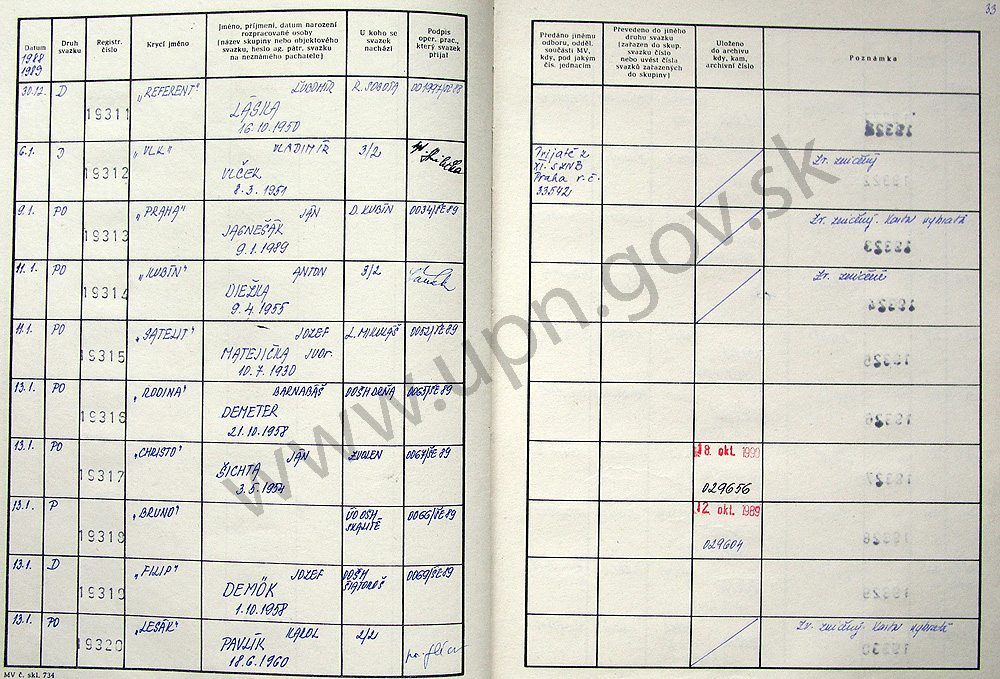 33
Datum
1988
1989
Druh
svazku
Registr.
číslo
Krycí jméno
Jméno, příjmení, datum narození
rozpracované osoby
(název skupiny nebo objektového
svazku, heslo ag. pátr. svazku
na neznámého pachatele)
U koho se
svazek
nachází
Podpis
oper. prac.,
který svazek
přijal
Předáno jinému
odboru, odděl.
součásti MV,
kdy, pod jakým
čís. jednacím
Převedeno do jiného
druhu svazku
(zařazen do skup.
svazku číslo
nebo uvést čísla
svazků zařazených
do skupiny)
Uloženo
do archivu
kdy, kam,
archivní číslo
Poznámka
30.12. D 19311 „REFERENT" ĽUBOMÍR R. SOBOTA
LÁSKA
16.10.1950
6.1. D 19312 „VLK" VLADIMÍR 3/2
VLČEK
8.3.1951
Prijaté z
XI. S SNB
Praha r.č.
33542
Zv. zničený
9.1. PO 19313 „PRAHA" JÁN D. KUBÍN 0034/ŠE 89
JAGNEŠÁK
9.1.1989
Zv. zničený. Karta vybratá
11.1. PO 19314 „KUBÍN" ANTON 3/2
DIEŽKA
9.4.1955
Zv. zničené
11.1. PO 19315 „SATELIT" JOZEF L. MIKULÁŠ 0052/ŠE 89
MATEJIČKA JUDr.
10.7.1930
13.1. PO 19316 „RODINA" BARNABÁŠ 0065/ŠE 89
DEMETER
21.10.1958
13.1. PO 19317 „CHRISTO" JÁN ZVOLEN 0067/ŠE 89
ŠICHTA
3.5.1954
18. okt. 1990
029656
13.1. P 19318 „BRUNO" ÚO OSH
SKALITÉ 0066/ŠE 89
12. okt. 1989
029604
13.1. D 19319 „FILIP" JOZEF OOSH
ŠIATOROŠ 0069/ŠE 89
DEMÖK
1.10.1958
13.1. PO 19320 „LESÁK" KAROL 2/2
PAVLÍK
18.6.1960
Zv. zničený. Karta vybratá
MV č. skl. 734
www.upn.gov.sk